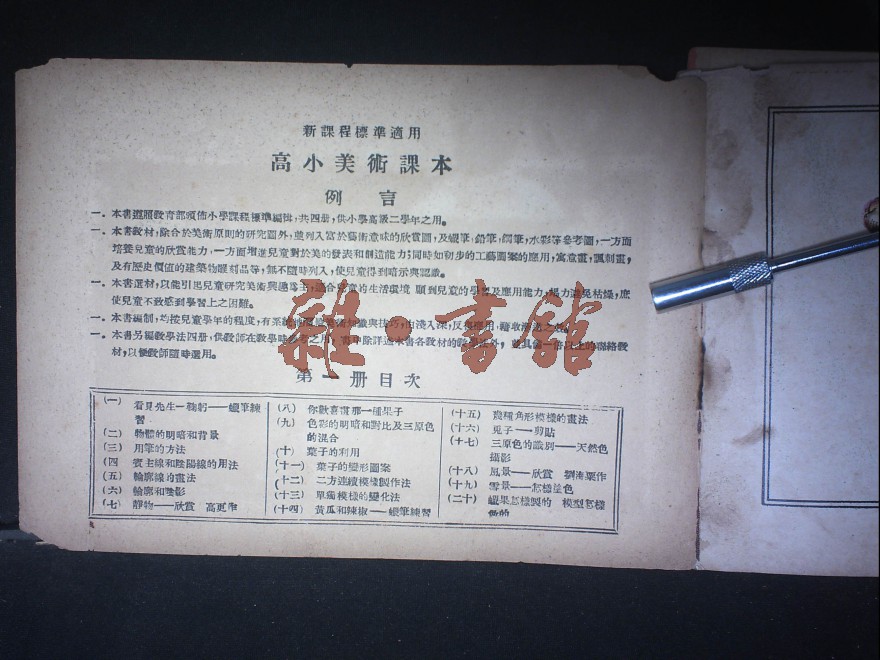 新課程標準適用
高小美術課本
例言
一．本書遵照教育部頒佈小學課程標準編輯，共四册，供小學高級二學年之用。
一．本書教材，除合於美術原則的研究圖外，並列入富於藝術意味的欣賞圖，及蠟筆，鉛筆，鋼筆，水彩等參考圖，一方面
培養兒童的欣賞能力，一方面增進兒童對於美的發表和創造能力；同時如初步的工藝圖案的應用，寓意畫，諷刺畫，
及有歷史價值的建築物雕刻品等，無不隨時列入，使兒童得到暗示與認識。
一．本書選材，以能引起兒童研究美術興趣爲主，適合兒童的生活環境 顧到兒童的學習及應用能力，竭力避免枯燥，庶
使兒童不致感到學習上之困難。
一．本書編制，均按兒童學年的程度，有系統的
知識與技巧，由淺入深，反復應用，
一．本書另編教學法四册，供教師在教學時參考之用，書中除詳述本書各教材的教學法外，並具備一倍以上的聯絡教
材，以便教師隨時選用。
雜·書館
第一册目次
（一） 看見先生一鞠躬——蠟筆練
習
（二） 物體的明暗和背景
（三） 用筆的方法
（四 賓主線和陰陽線的用法
（五） 輪廓線的畫法
（六） 輪廓和陰影
（七） 靜物——欣賞 高更作
（八） 你歡喜還那一種果子
（九） 色彩的明暗和對比及三原色
的混合
（十） 葉子的利用
（十一） 葉子的變形圖案
（十二） 二方連續模樣製作法
（十三） 單獨模樣的變化法
（十四） 黃瓜和辣椒——蠟筆練習
（十五） 幾種角形模樣的畫法
（十六） 兔子——剪貼
（十七） 三原色的識別——天然色
攝影
（十八） 風景——欣賞 劉海粟作
（十九） 雪景——怎樣塗色
（二十） 蠟果怎樣製的 模型怎樣
做的